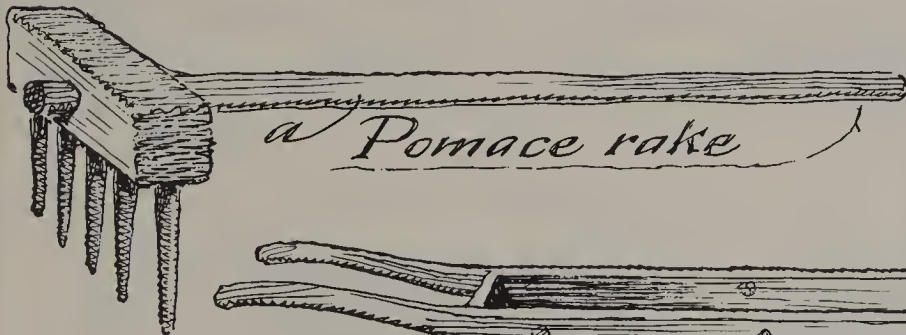 a Pomace rake